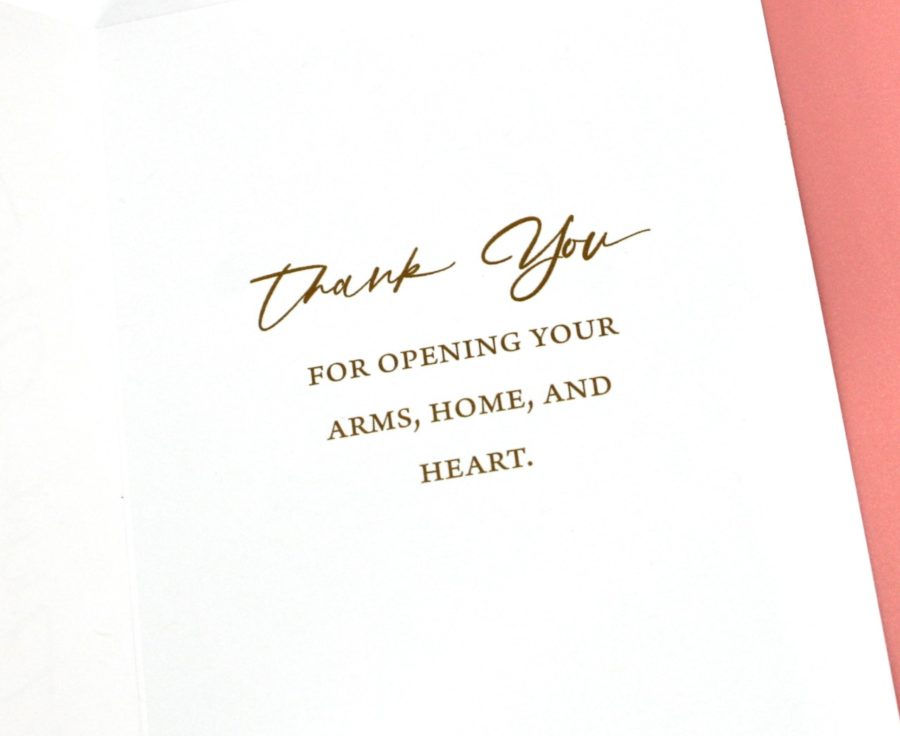 Thank You
FOR OPENING YOUR
ARMS, HOME, AND
HEART.